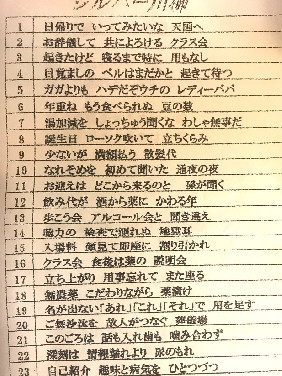 シルバー川柳
1 日帰りで いってみたいな 天国へ
2 お辞儀して 共によろける クラス会
3 起きたけど 寝るまで特に 用もなし
4 目覚ましの ベルはまだかと 起きて待つ
5 ガガよりも ハデだぞウチの レディーババ
6 年重ね もう食べられぬ 豆の数
7 湯加減を しょっちゅう聞くな わしゃ無事だ
8 誕生日 ローソク吹いて 立ちくらみ
9 少ないが 満額払う 散髪代
10 なれそめを 初めて聞いた 通夜の夜
11 お迎えは どこから来るのと 孫が聞く
12 飲み代が 酒から薬に かわる年
13 歩こう会 アルコール会と 聞き違え
14 聴力の 検査で測れぬ 地獄耳
15 入場料 顔見て即座に 割り引かれ
16 クラス会 食後は薬の 説明会
17 立ち上がり 用事忘れて また座る
18 無農薬 こだわりながら 薬漬け
19 名が出ない「あれ」「これ」「それ」で 用を足す
20 ご無沙汰を 故人がつなぐ 葬儀場
21 このごろは 話も入れ歯も 噛み合わず
22 深刻は 情報漏れより 尿のもれ
23 自己紹介 趣味と病気を ひとつづつ